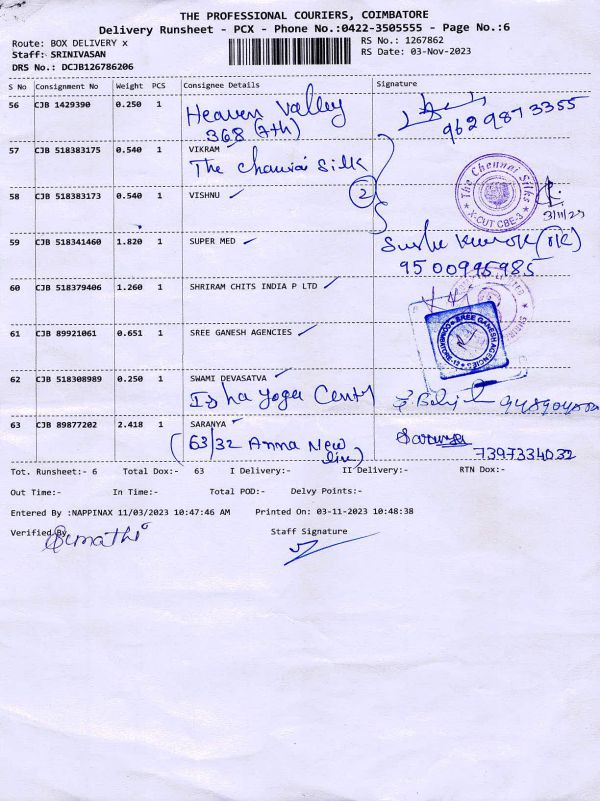 THE PROFESSIONAL COURIERS, COIMBATORE
Delivery Runsheet - PCX - Phone No.:0422-3505555 - Page No.:6
Route: BOX DELIVERY x RS No.: 1267862
Staff: SRINIVASAN RS Date: 03-Nov-2023
DRS No.: DCJB126786206
S No Consignment No Weight PCS Consignee Details Signature
56 CJB 1429390 0.250 1 Heaven Valley
368 (7th) 9629873355
57 CJB 518383175 0.540 1 VIKRAM
The Silk
The Chennai Silks
X-CUT CBE-3
58 CJB 518383173 0.540 1 VISHNU 2
3/11/23
59 CJB 518341460 1.820 1 SUPER MED
9500995985
60 CJB 518379406 1.260 1 SHRIRAM CHITS INDIA P LTD
61 CJB 89921061 0.651 1 SREE GANESH AGENCIES
SREE GANESH AGENCIES
62 CJB 518308989 0.250 1 SWAMI DEVASATVA
Isha Yoga
63 CJB 89877202 2.418 1 SARANYA
(63/32 Anna New Saranya
7397334032
Tot. Runsheet:- 6 Total Dox:- 63 I Delivery:- II Delivery:- RTN Dox:-
Out Time:- In Time:- Total POD:- Delvy Points:-
Entered By :NAPPINAX 11/03/2023 10:47:46 AM Printed On: 03-11-2023 10:48:38
Verified By Staff Signature